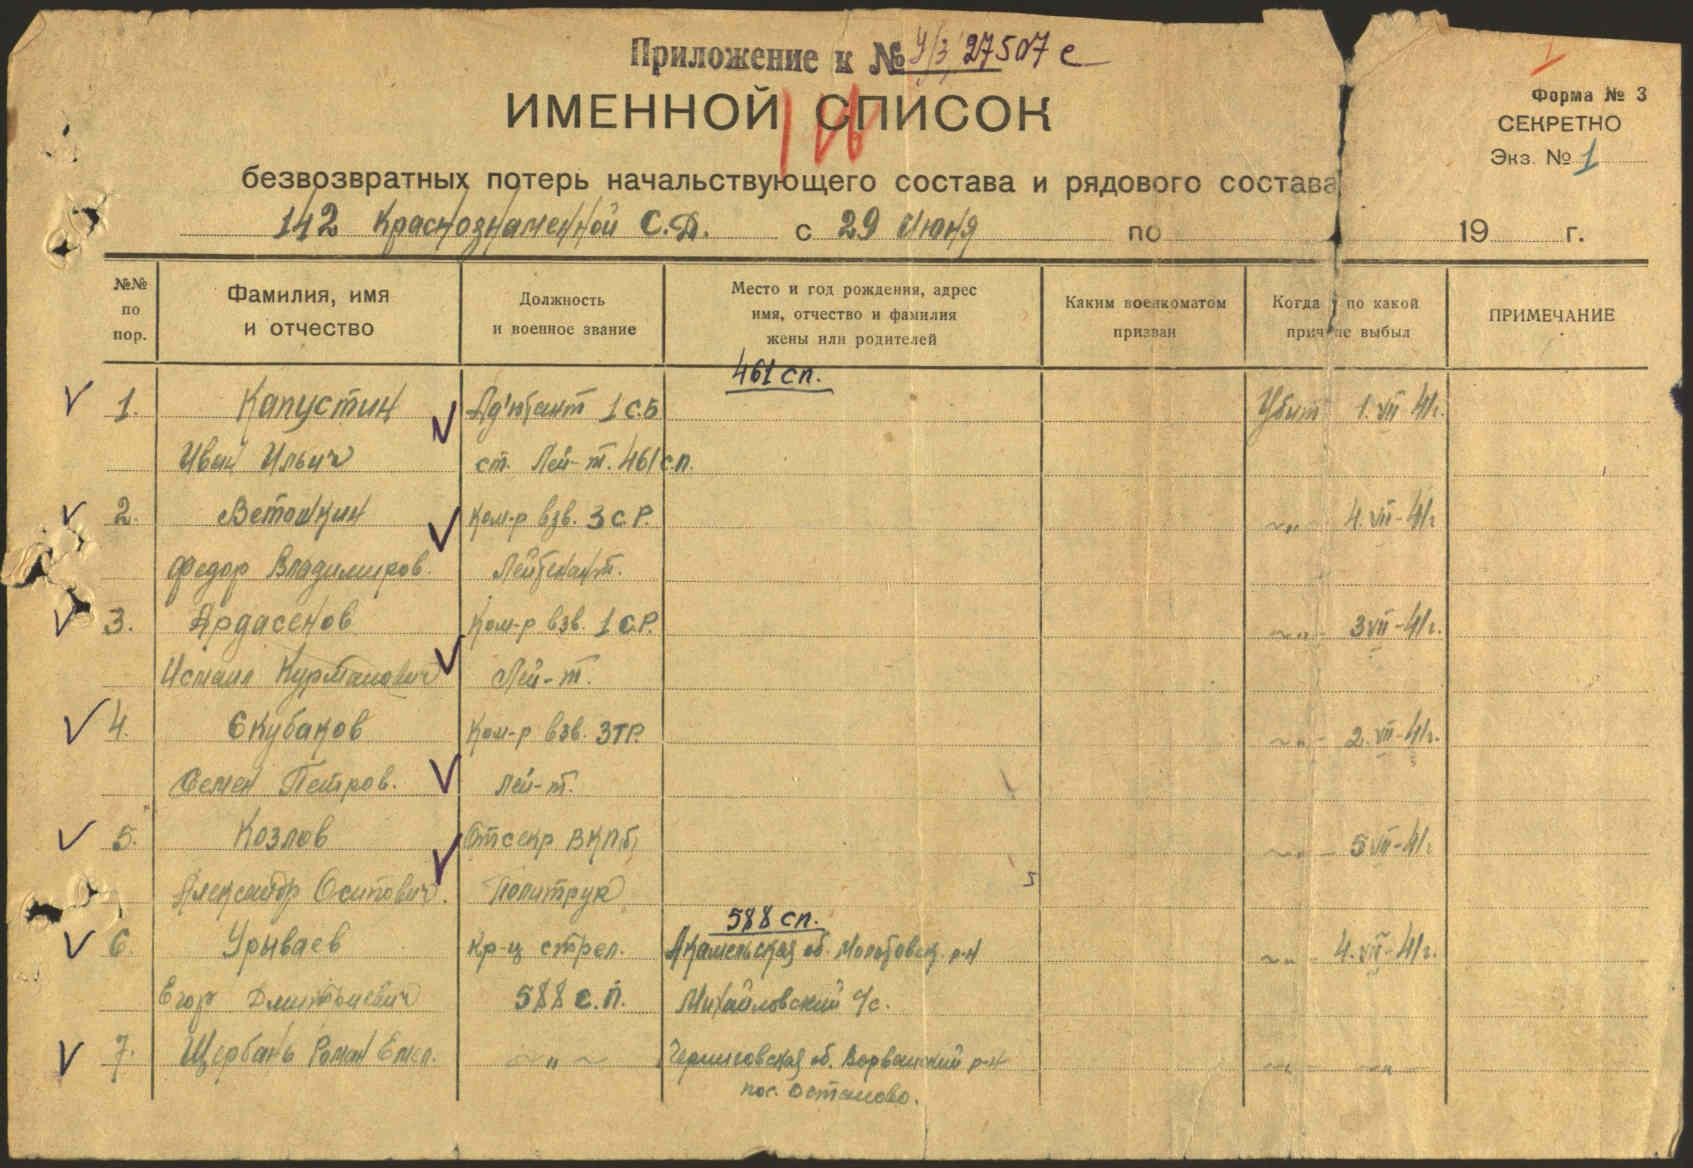 Приложение к № У/3/27507с
ИМЕННОЙ СПИСОК
Форма № 3
СЕКРЕТНО
Экз. № 1
безвозвратных потерь начальствующего состава и рядового состава
142 Краснознаменной С.Д. с 29 Июня по 19 г.
№№ по пор.
Фамилия, имя и отчество
Должность и военное звание
Место и год рождения, адрес имя, отчество и фамилия жены или родителей
Каким военкоматом призван
Когда по какой причине выбыл
ПРИМЕЧАНИЕ
461 сп.
1. Капустин Ад'ютант 1 С.Б Убит 1.VII 41г.
Иван Ильич ст. Лей-т. 461 с.п.
2. Ветошкин Ком-р взв. 3 С.Р. -„- 4.VII-41г
Федор Владимиров. Лейтенант.
3. Ардасенов Ком-р взв. 1 С.Р. -„- 3 VII-41г.
Исмаил Курманович Лей-т.
4. Екубаков Ком-р взв. 3ТР. -„- 2.VII-41г.
Семен Петров. Лей-т.
5. Козлов Отсекр ВКПб -„- 5 VII-41г
Александр Осипович. Политрук
588 сп.
6. Урываев кр-ц стрел. Акмольская об. Молотовск. р-н -„- 4.VII-41г.
Егор Дмитриевич 588 С.П. Михайловский с/с.
7. Щербань Роман Емел. -„- Черниговская об. р-н -„- -„-
пос. Остапово.